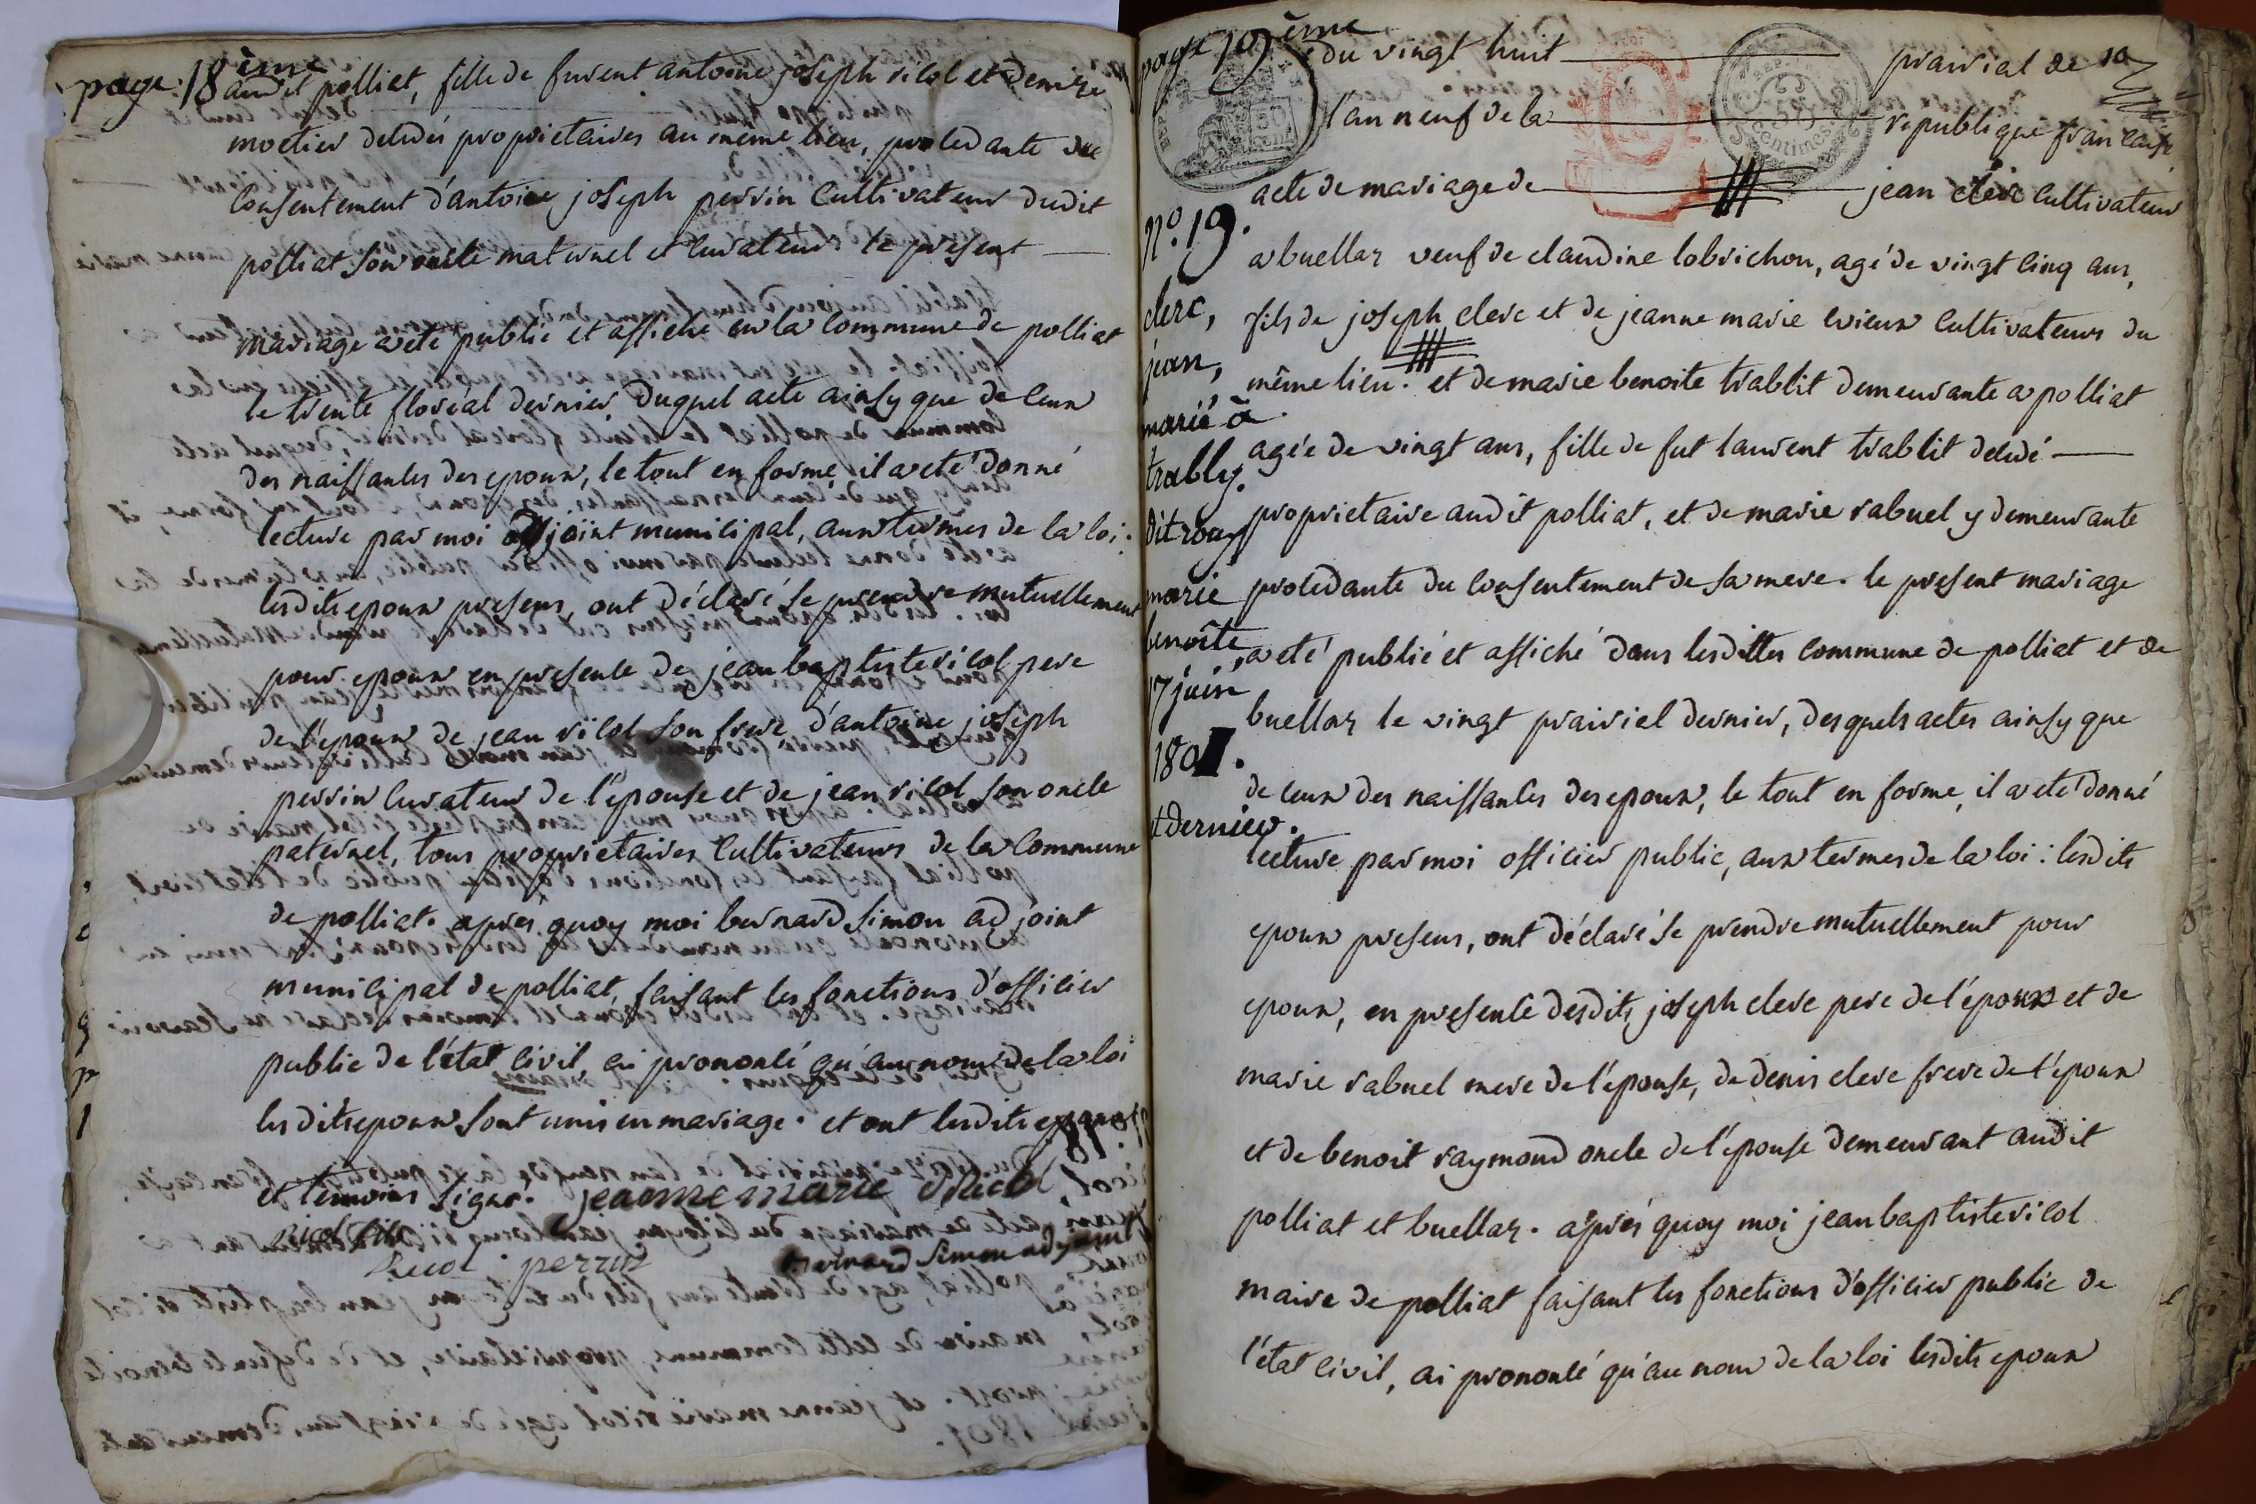 page 18ème
audit polliat, fille de furent antoine joseph ricol et denise
moetier décédés proprietaires au même lieu, procedante du
consentement d'antoine joseph perrin cultivateur dudit
polliat son oncle maternel et curateur le present
mariage a eté publié et affiché en la commune de polliat
le trente floreal dernier duquel acte ainsy que de ceux
des naissances des epoux, le tout en forme, il a eté donné
lecture par moi adjoint municipal, aux termes de la loi.
lesdits epoux presens, ont déclaré se prendre mutuellement
pour epoux en presence de jean baptiste ricol pere
de l'epoux de jean ricol son frere d'antoine joseph
perrin curateur de l'épouse et de jean ricol son oncle
paternel, tous proprietaires cultivateurs de la commune
de polliat. aprés quoy moi bernard simon adjoint
municipal de polliat, faisant les fonctions d'officier
public de l'état civil, ai prononcé qu'au nom de la loi
lesdits epoux sont unis en mariage. et ont lesdits epoux
et temoins signé. jeanne marie ricol
ricol perrin bernard simon adjoint
page 19ème
du vingt huit prairial de
l'an neuf de la republique francaise
acte de mariage de jean clerc cultivateur
a buellas veuf de claudine lobrichon, agé de vingt cinq ans,
fils de joseph clerc et de jeanne marie cultivateurs du
même lieu. et de marie benoite trablit demeurante a polliat
agée de vingt ans, fille de fut laurent trablit décédé
proprietaire audit polliat, et de marie rabuel y demeurante
procedante du consentement de sa mere. le present mariage
a eté publié et affiché dans lesdittes commune de polliat et de
buellas le vingt prairiel dernier, desquels actes ainsy que
de ceux des naissances des epoux, le tout en forme, il a eté donné
lecture par moi officier public, aux termes de la loi : lesdits
epoux presens, ont déclaré se prendre mutuellement pour
epoux, en presence desdits joseph clerc pere de l'époux et de
marie rabuel mere de l'épouse, de denis clerc frere de l'époux
et de benoit raymond oncle de l'épouse demeurant audit
polliat et buellas. aprés quoy moi jean baptiste ricol
maire de polliat faisant les fonctions d'officier public de
l'état civil, ai prononcé qu'au nom de la loi lesdits epoux
No. 19.
clerc,
jean,
marié à
trably.
dit
marie
benoîte,
17 juin
1801.
et dernier.